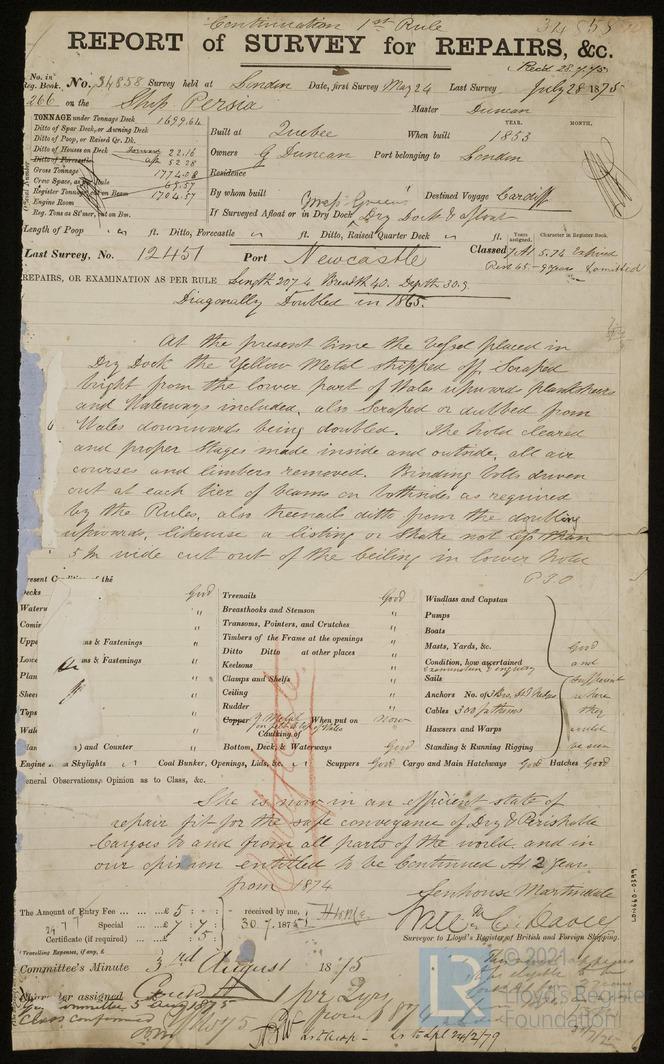 Continuation 1st Rule
34858
REPORT of SURVEY for REPAIRS, &c.
Recd 28.7.75
No. in Reg. Book. No. 34858 Survey held at London Date, first Survey May 24 Last Survey July 28 1875
266 on the Ship Persia Master Duncan
TONNAGE under Tonnage Deck 1699.64
Ditto of Spar Deck, or Awning Deck
Ditto of Poop, or Raised Qr. Dk.
Ditto of Houses on Deck forward 22.16
Ditto of Forecastle aft 52.28
Gross Tonnage 1774.08
Crew Space, as per Rule 69.57
Register Tonnage, cut on Beam 1704.57
Engine Room
Reg. Tons as St'mer, cut on Bm.
YEAR. MONTH.
Built at Quebec When built 1853
Owners G Duncan Port belonging to London
Residence
By whom built Destined Voyage Cardiff
If Surveyed Afloat or in Dry Dock Dry Dock & afloat
Length of Poop ft. Ditto, Forecastle ft. Ditto, Raised Quarter Deck ft.
Years assigned. Character in Register Book.
Last Survey, No. 12451 Port Newcastle Classed A1 5.74 Expired
REPAIRS, OR EXAMINATION AS PER RULE Length 207.4 Breadth 40. Depth 30.9
Diagonally Doubled in 1865.
At the present time the Vessel placed in
Dry Dock the Yellow Metal stripped off, Scraped
bright from the lower part of Wales upwards plankshears
and Waterways included, also Scraped or dubbed from
Wales downwards being doubled. The hold cleared
and proper stages made inside and outside, all air
courses and limbers removed. Binding bolts driven
out at each tier of beams on both sides as required
by the Rules, also treenails ditto from the doubling
upwards, likewise a listing or Strake not less than
5 In wide cut out of the Ceiling in lower hold
P.T.O
Present of the
Decks Good
Waterw "
Comin "
Uppe ms & Fastenings "
Lowe ms & Fastenings "
Plan "
Sheer "
Tops "
Wale "
) and Counter "
Treenails Good
Breasthooks and Stemson "
Transoms, Pointers, and Crutches "
Timbers of the Frame at the openings "
Ditto Ditto at other places "
Keelsons "
Clamps and Shelfs "
Ceiling "
Rudder "
Copper Y Metal When put on now
Caulking of
Bottom, Deck, & Waterways Good
Windlass and Capstan
Pumps
Boats
Masts, Yards, &c.
Condition, how ascertained
Examination & enquiry
Sails
Anchors No. of
Cables 300 fathoms
Hawsers and Warps
Standing & Running Rigging
Good
and
Sufficient
where
they
could
be seen
Engine Skylights " Coal Bunker, Openings, Lids, &c. " Scuppers Good Cargo and Main Hatchways Good Hatches Good
General Observations, Opinion as to Class, &c.
She is now in an efficient state of
repair fit for the safe conveyance of Dry & Perishable
Cargoes to and from all parts of the world, and in
our opinion entitled to be Continued A1 2 Years
from 1874
Senhouse Martindale
The Amount of Entry Fee ... £ 5 :
Special ... £ 7 : 7 :
Certificate (if required) ... £ : 5 :
received by me,
30.7.1875
Surveyor to Lloyd's Register of British and Foreign Shipping.
(Travelling Expenses, if any, £
Committee's Minute 3rd August 1875
Character assigned 2 yrs
Committee 5 Aug 1875
Class confirmed
24/2/79
LON660-0399
© 2021
LR
Lloyd's Register
Foundation